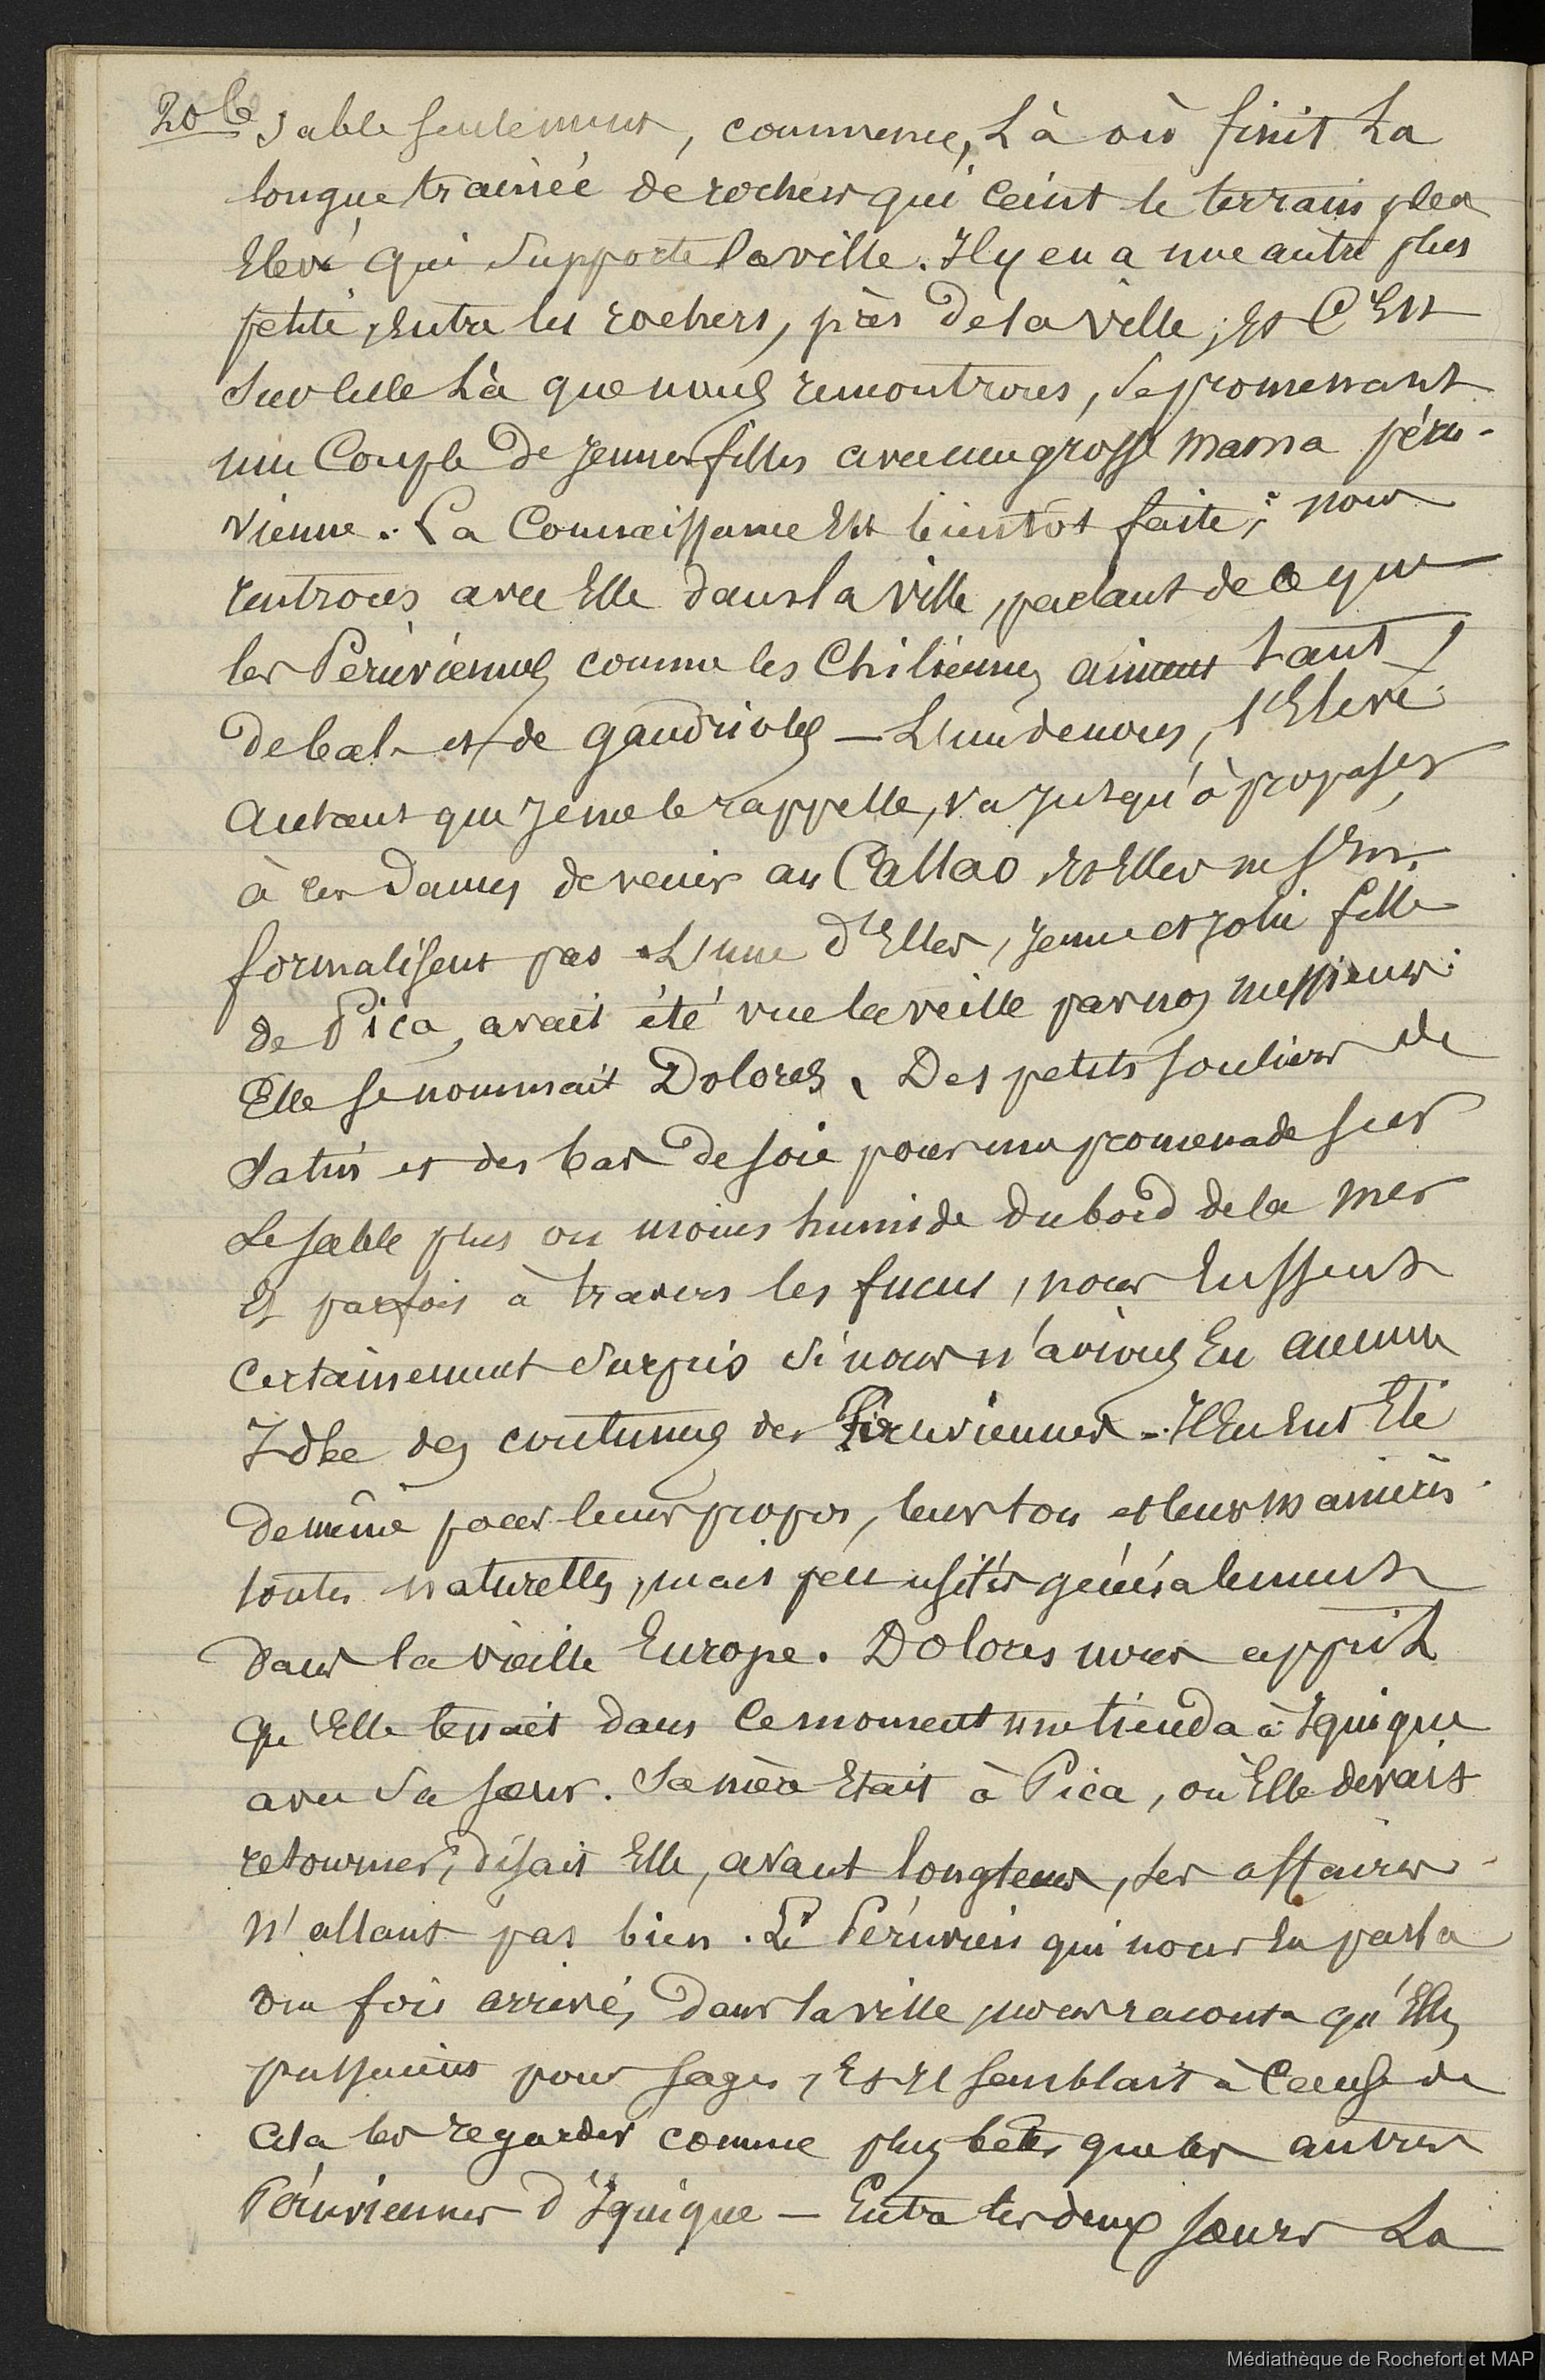 206 Sable seulement, commence, Là où finit La
longue trainée de rochers qui ceint le terrain plus
Elevé qui Supporte la ville. Il y en a une autre plus
petite, Entre les rochers, près de la ville, Et C'Est
Sur celle Là que nous rencontrons, Se promenant
une Couple de Jeunes filles avec une grosse mama péru-
vienne. La Connaissance Est bientôt faite; nous
rentrons avec Elle dans la ville, parlant de ce que
les Péruviennes comme les Chiliennes aiment tant,
de bal et de gaudrioles — L'un de nous, l'Elève
Autant que Je me le rappelle, va Jusqu'à proposer
à ces Dames de venir au Callao Et Elles ne s'En
formalisent pas. L'une d'Elles, Jeune et Jolie fille
de Pica, avait été vue la veille par nos messieurs:
Elle se nommait Dolores. Des petits souliers de
Satin et des bas de soie pour une promenade sur
Le sable plus ou moins humide du bord de la mer
Et parfois à travers les fucus, nous Eussent
Certainement Surpris Si nous n'avions Eu aucune
Idée des coutumes des Péruviennes. Il En Eut Eté
de même pour leurs propos, leur ton et leurs manières
toutes naturelles, mais peu usités généralement
dans la vieille Europe. Dolores nous apprit
qu'Elle tenait dans Ce moment une tienda à Iquique
avec Sa soeur. Sa mère Etait à Pica, où Elle devait
retourner, disait Elle, avant longtems, Les affaires
n'allant pas bien. Le Péruvien qui nous En parla
une fois arrivés dans la ville nous raconta qu'Elles
passaient pour sages, Et Il semblait à Cause de
Cela les regarder comme plus bêtes que les autres
Péruviennes d'Iquique — Entre les deux soeurs La
Médiathèque de Rochefort et MAP